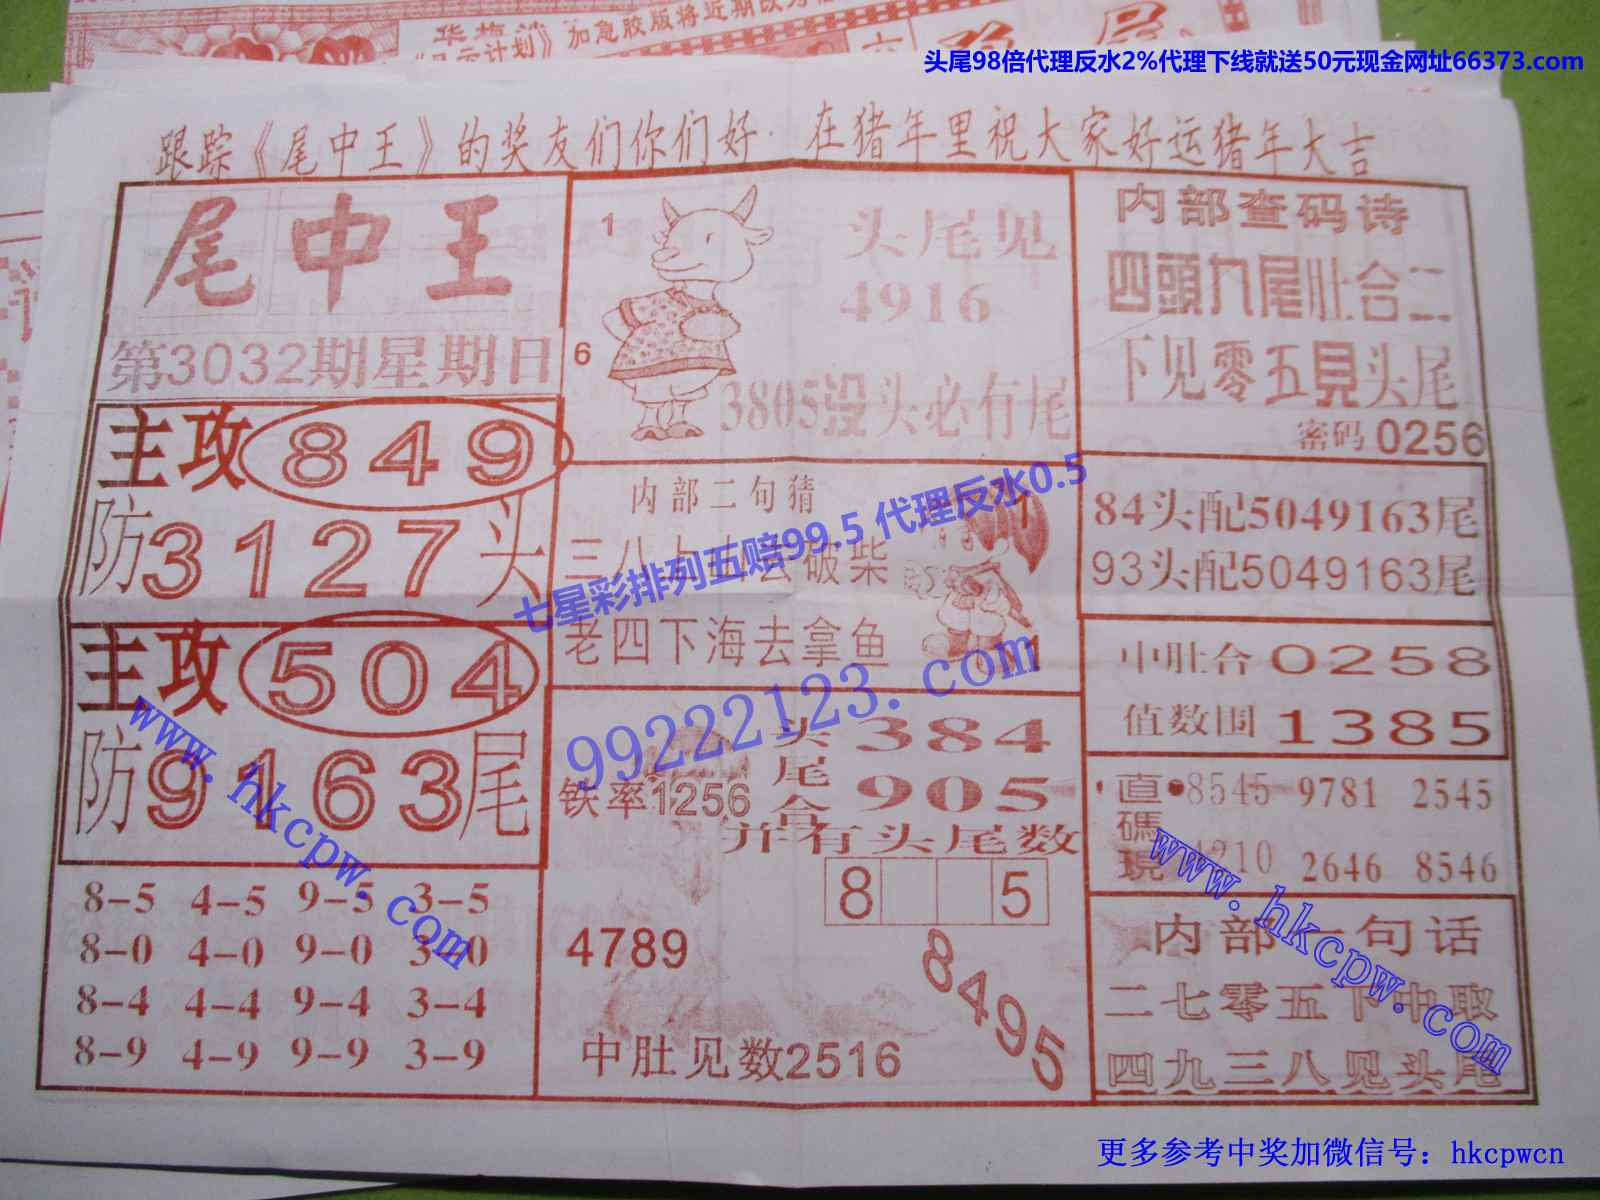 华梅
《口示计划》加急胶版将近期改为
头尾98倍代理反水2%代理下线就送50元现金网址66373.com
跟踪《尾中王》的奖友们你们好.在猪年里祝大家好运猪年大吉
尾中王
第3032期星期日
主攻849
防3127头
主攻504
防9163尾
8-5 4-5 9-5 3-5
8-0 4-0 9-0 3-0
8-4 4-4 9-4 3-4
8-9 4-9 9-9 3-9
1
6
头尾见
4916
3805没头必有尾
内部二句猜
三八上山去破柴
老四下海去拿鱼
七星彩排列五赔99.5 代理反水0.5
99222123.com
头384
尾
合905
铁率1256
并有头尾数
8 5
4789
8495
中肚见数2516
内部查码诗
四頭九尾肚合二
下见零五見头尾
密码 0256
84头配5049163尾
93头配5049163尾
中肚合 0258
值数围 1385
直碼現
8545 9781 2545
4210 2646 8546
内部一句话
二七零五下中取
四九三八见头尾
www.hkcpw.com
www.hkcpw.com
更多参考中奖加微信号：hkcpwcn